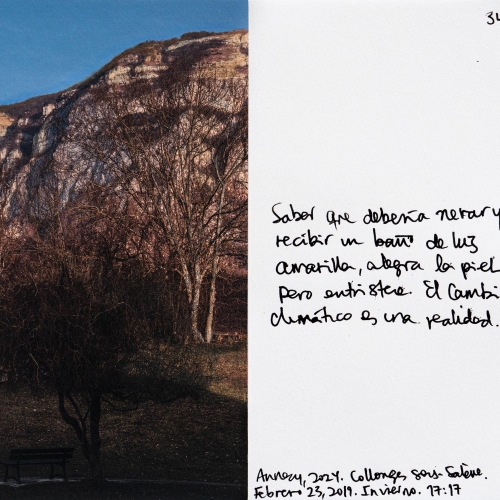 34
Saber que debería nevar y
recibir un baño de luz
amarilla, alegra la piel
pero entristece. El Cambi
climático es una realidad.
Annecy, 2024. Collonges sous Salève.
Febrero 23, 2019. Invierno. 17:17